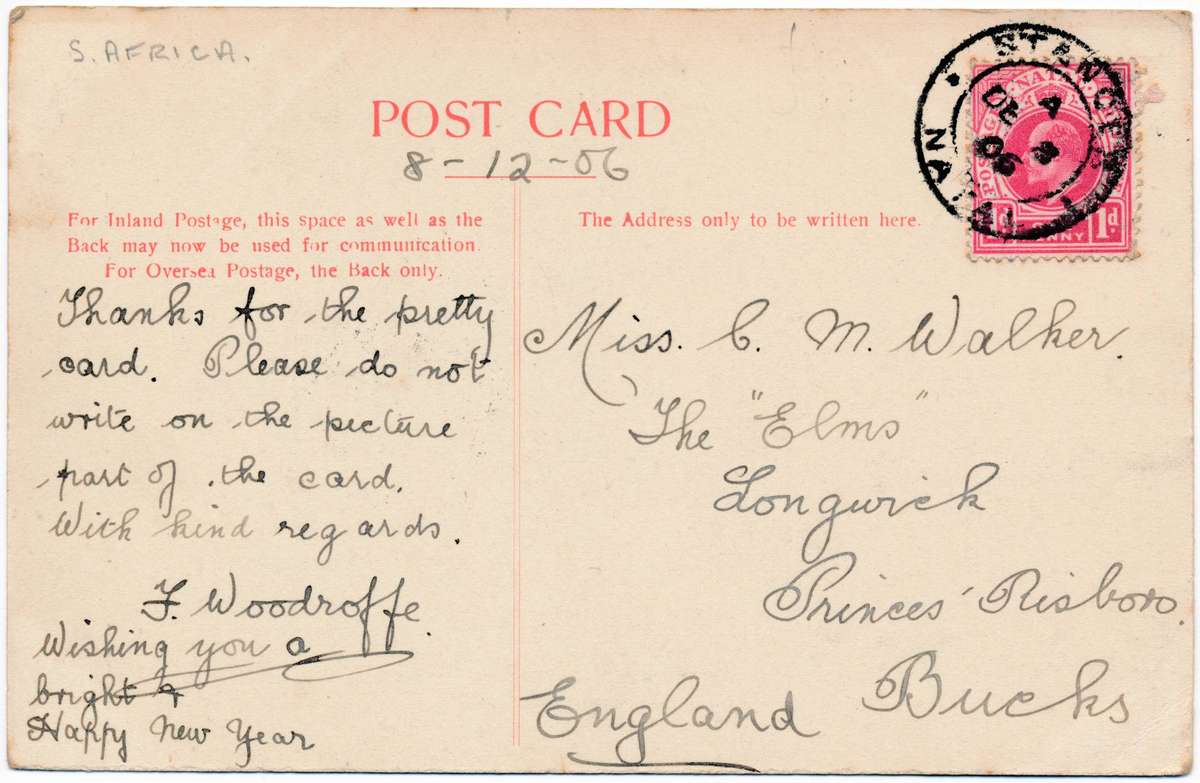 S. AFRICA.
POST CARD
8-12-06
For Inland Postage, this space as well as the
Back may now be used for communication.
For Oversea Postage, the Back only.
The Address only to be written here.
STANGER
NATAL
A
DE 8
06
NATAL
POSTAGE
1d PENNY 1d
Thanks for the pretty
card. Please do not
write on the picture
part of the card.
With kind regards.
F. Woodroffe.
Wishing you a
bright &
Happy New Year
Miss. C. M. Walker.
The "Elms"
Longwick
Princes' Risboro.
Bucks
England